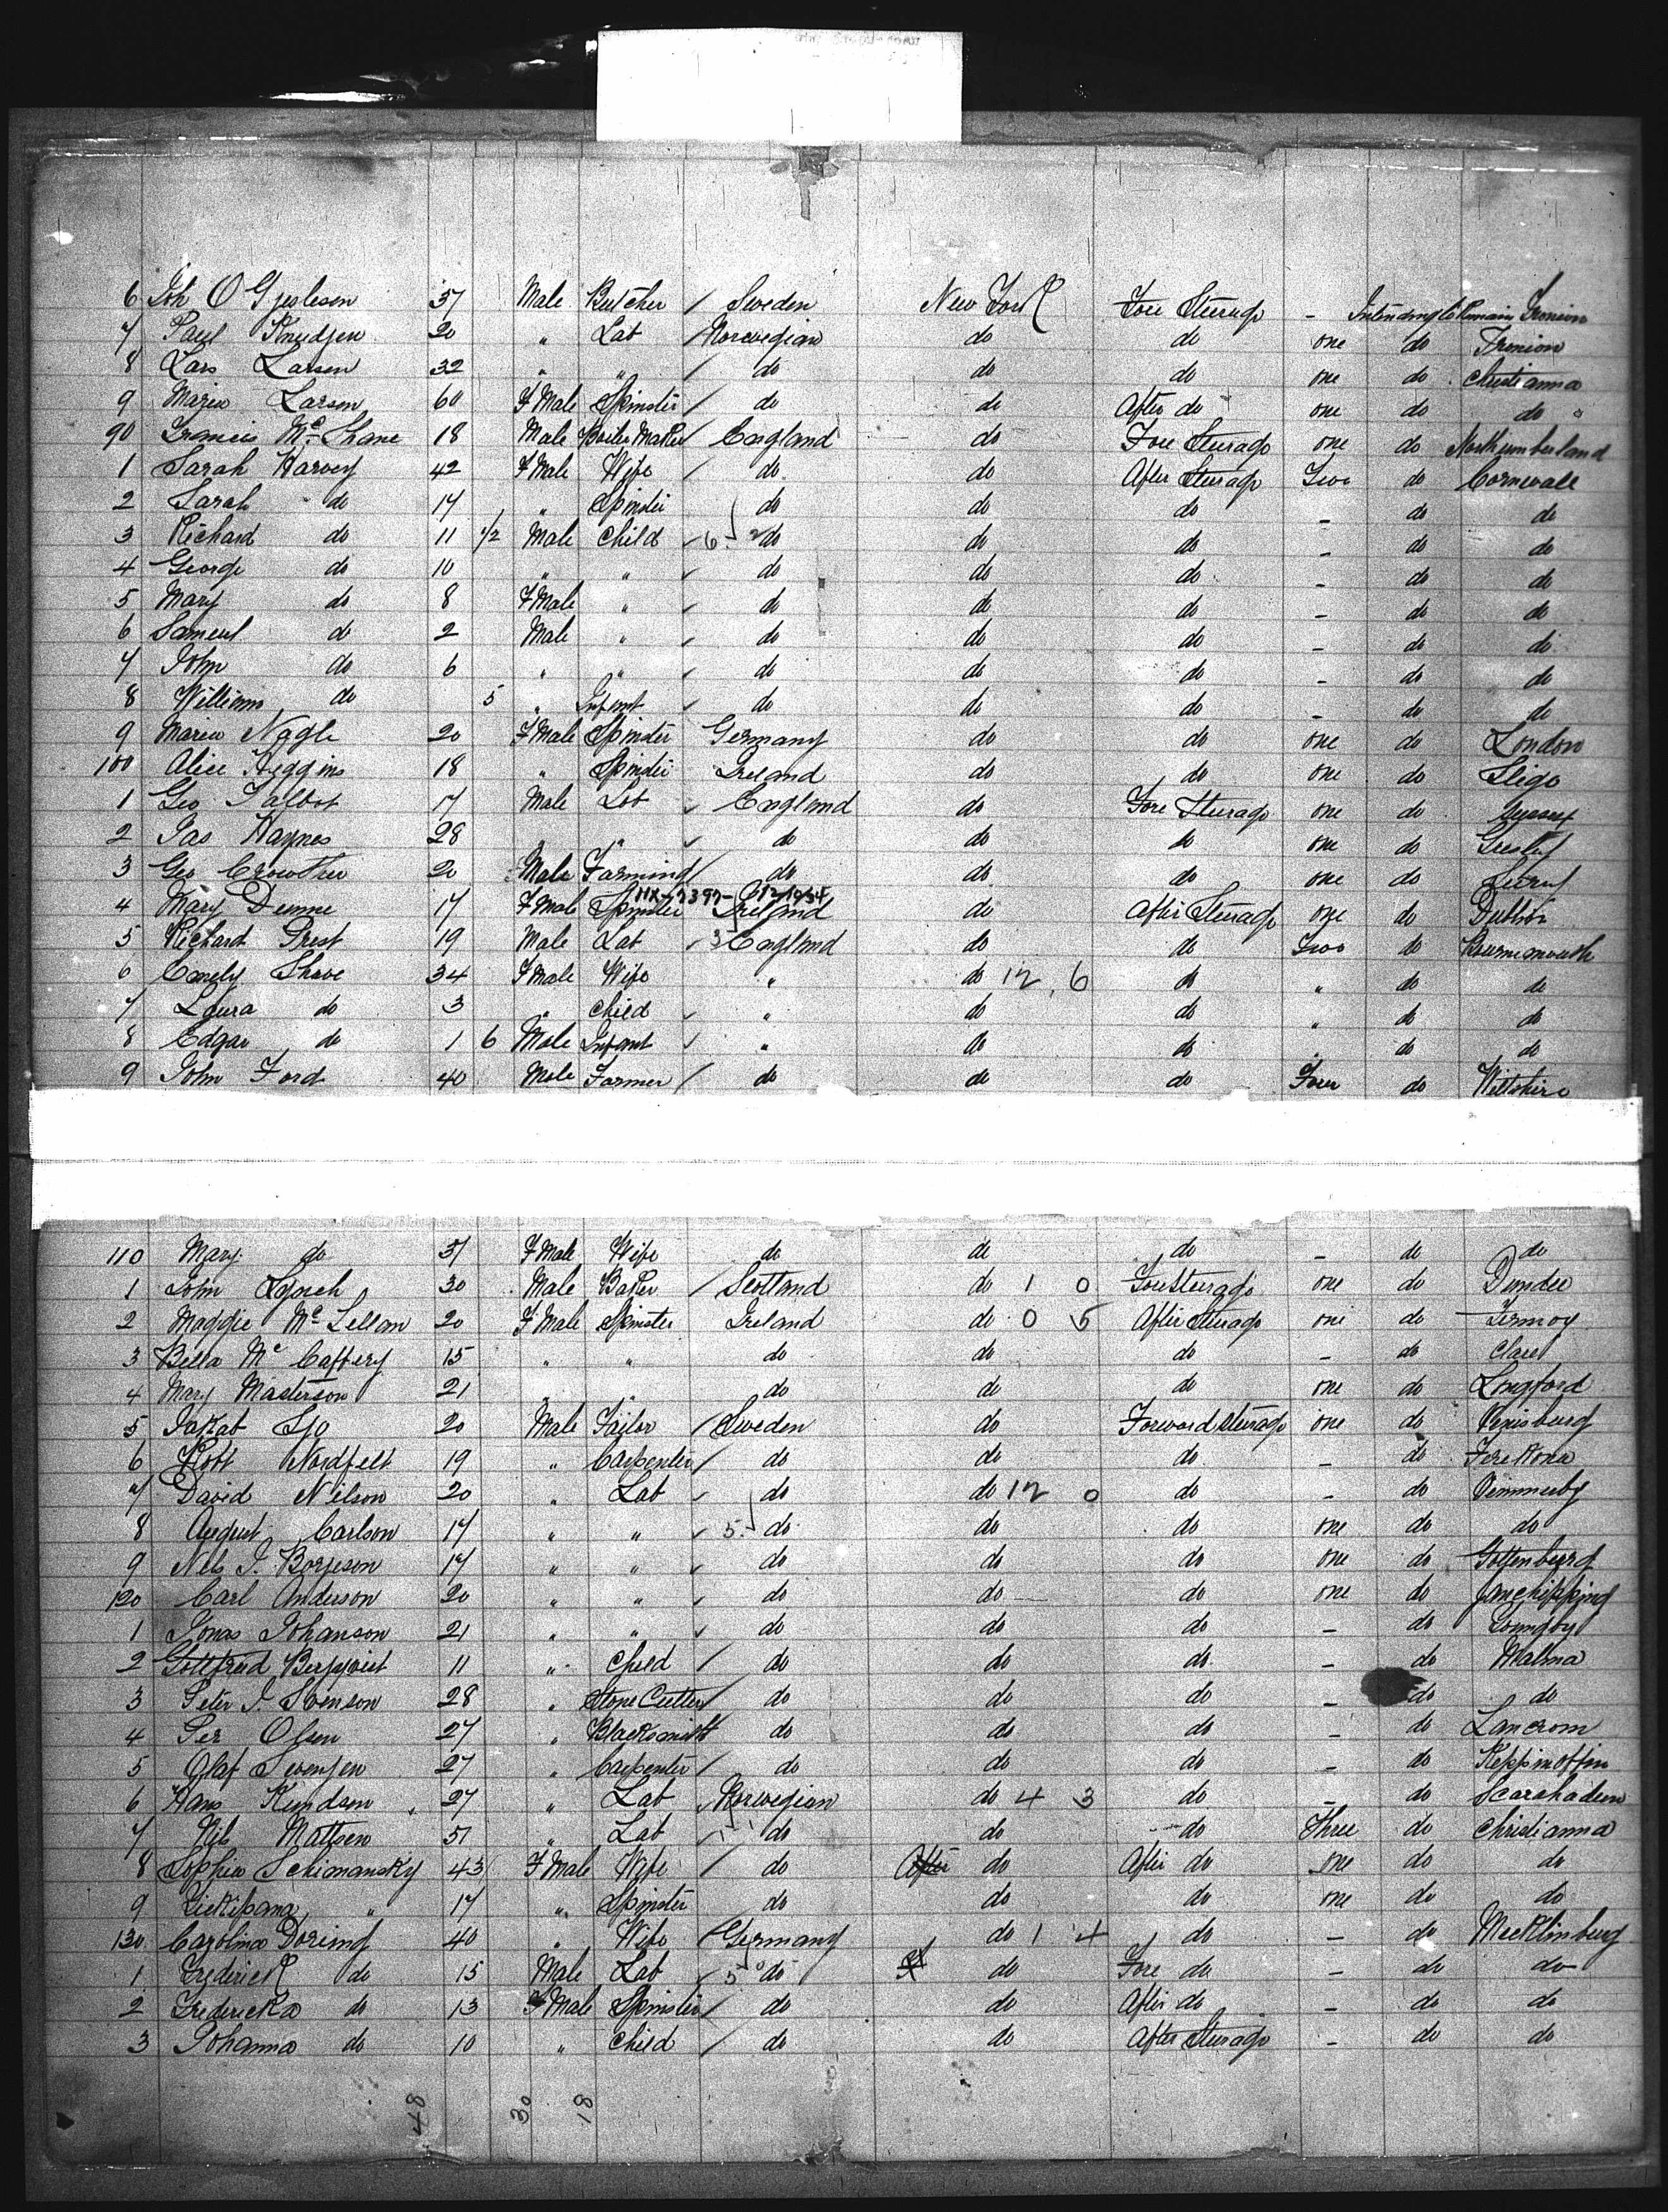 6 Joh O Gjesleson 37 Male Butcher / Sweden New York Fore Steerage - Intending to Remain
7 Paul Knudsen 20 " Lab / Norwegian do do one do
8 Lars Larsen 32 " " / do do do one do Christianna
9 Maria Larson 60 F Male Spinster / do do After do one do do "
90 Francis Mc Shane 18 Male Boiler Maker / England do Fore Steerage one do Northumberland
1 Sarah Harvey 42 F Male Wife / do do After Steerage Two do Cornwall
2 Sarah do 17 " Spinster do do do - do do
3 Richard do 11 1/2 Male Child 6 2 do do do - do do
4 George do 10 " " do do do - do do
5 Mary do 8 F Male " do do do - do do
6 Sameul do 2 Male " do do do - do do
7 John do 6 " " do do do - do do
8 William do 5 " Infant do do do - do do
9 Maria Nagle 20 F Male Spinster Germany do do one do London
100 Alice Higgins 18 " Spinster Ireland do do one do Sligo
1 Geo Talbot 17 Male Lab England do Fore Steerage one do Sussex
2 Jas Haynes 28 " " do do do one do
3 Geo Crowther 20 Male Farming / do do do one do
11X-7397- 12/19/34
4 Mary Dunne 17 F Male Spinster Ireland do After Steerage one do Dublin
5 Richard Prest 19 Male Lab 3 England do do Two do Bournemouth
6 Emely Shave 34 F Male Wife " do 12 6 do " do do
7 Laura do 3 " Child " do do " do do
8 Edgar do 1 6 Male Infant " do do " do do
9 John Ford 40 Male Farmer / do do do Four do Wiltshire
110 Mary do 37 F Male Wife do do do - do do
1 John Lynch 30 Male Baker / Scotland do 1 0 Fore Steerage one do Dundee
2 Maggie Mc Lellan 20 F Male Spinster Ireland do 0 5 After Steerage one do Fermoy
3 Bella Mc Caffery 15 " " do do do - do Clare
4 Mary Masterson 21 " " do do do one do Longford
5 Jakob Sjo 20 Male Tailor / Sweden do Forward Steerage one do
6 Nordfelt 19 " Carpenter / do do do - do
7 David Nilson 20 " Lab do do 12 0 do - do Vimmerby
8 August Carlson 17 " " 5 do do do one do do
9 Nels J. Borjeson 17 " " do do do one do Gottenburg
120 Carl Anderson 20 " " do do do one do
1 Jonas Johanson 21 " " do do do - do
2 Gottfried Bergqvist 11 " Child / do do do - do Malma
3 Peter J. Svenson 28 " Stone Cutter / do do do - do do
4 Per Olsen 27 " Blacksmith do do do - do Lancrom
5 Olaf Svensen 27 " Carpenter / do do do - do
6 Hans Kundsen 27 " Lab Norwegian do 4 3 do - do
7 Nils Mattsen 51 " Lab do do do Three do Christianna
8 Sophia Schimansky 43 F Male Wife / do After do After do one do do
9 " 17 " Spinster do do do one do do
130 Carolina Doring 40 " Wife Germany do 1 4 do - do Mecklinburg
1 Frederick do 15 Male Lab 5 do do Fore do - do do
2 Fredericka do 13 F Male Spinster / do do After do - do do
3 Johanna do 10 " Child / do do After Steerage - do do
48 30 18